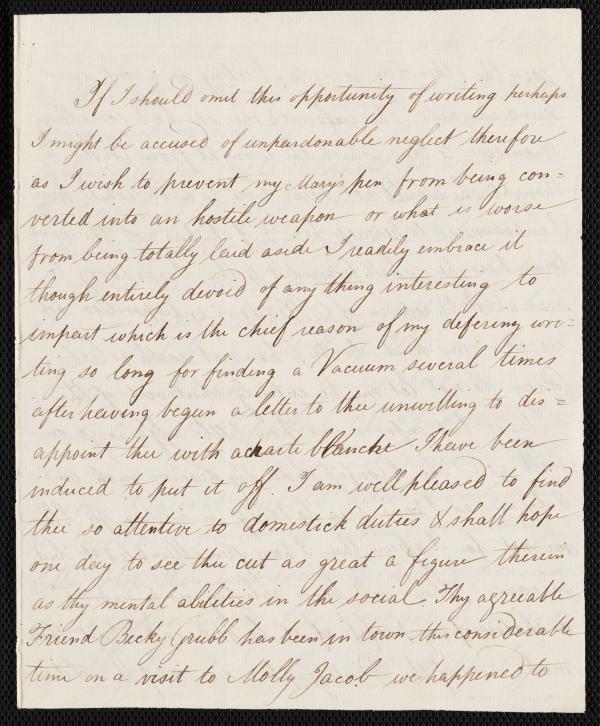 If I should omit this opportunity of writing perhaps
I might be accused of unpardonable neglect therefore
as I wish to prevent my Mary's pen from being con=
verted into an hostile weapon or what is worse
from being totally laid aside I readily embrace it
though entirely devoid of any thing interesting to
impart which is the chief reason of my defering wri=
ting so long for finding a Vacuum several times
after having begun a letter to thee unwilling to dis=
appoint thee with a charte blanche I have been
induced to put it off. I am well pleased to find
thee so attentive to domestick duties & shall hope
one day to see thee cut as great a figure therein
as thy mental abilities in the social. Thy agreeable
Friend Becky Grubb has been in town this considerable
time on a visit to Molly Jacob we happened to